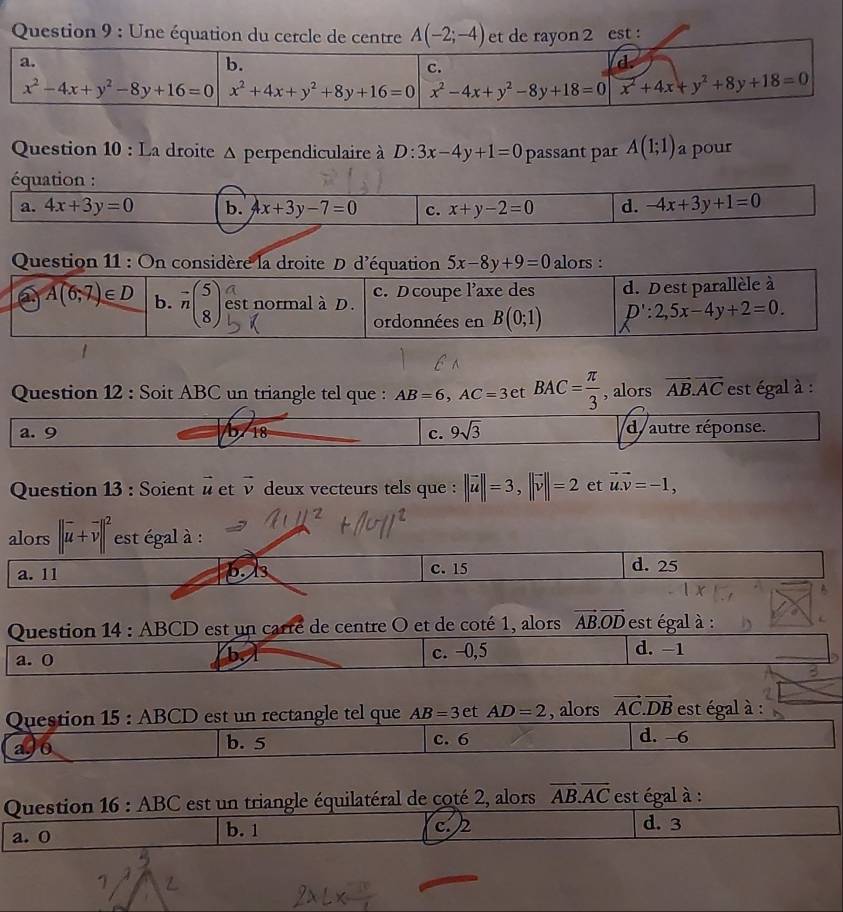 Question 9 : Une équation du cercle de centre A(−2;−4) et de rayon 2 est :
a. b. c. d.
x²−4x+y²−8y+16=0 x²+4x+y²+8y+16=0 x²−4x+y²−8y+18=0 x²+4x+y²+8y+18=0
Question 10 : La droite Δ perpendiculaire à D:3x−4y+1=0 passant par A(1;1) a pour
équation :
a. 4x+3y=0 b. 4x+3y−7=0 c. x+y−2=0 d. −4x+3y+1=0
Question 11 : On considère la droite D d'équation 5x−8y+9=0 alors :
a. A(6;7)∈D b. n⃗(5 8) est normal à D. c. D coupe l'axe des ordonnées en B(0;1) d. D est parallèle à D':2,5x−4y+2=0.
Question 12 : Soit ABC un triangle tel que : AB=6, AC=3 et BAC=π/3, alors AB.AC est égal à :
a. 9 b. 18 c. 9√3 d. autre réponse.
Question 13 : Soient u⃗ et v⃗ deux vecteurs tels que : ‖u⃗‖=3, ‖v⃗‖=2 et u⃗.v⃗=−1,
alors ‖u⃗+v⃗‖² est égal à :
a. 11 b. 13 c. 15 d. 25
Question 14 : ABCD est un carré de centre O et de coté 1, alors AB.OD est égal à :
a. 0 b. 1 c. −0,5 d. −1
Question 15 : ABCD est un rectangle tel que AB=3 et AD=2, alors AC.DB est égal à :
a. 0 b. 5 c. 6 d. −6
Question 16 : ABC est un triangle équilatéral de coté 2, alors AB.AC est égal à :
a. 0 b. 1 c. 2 d. 3